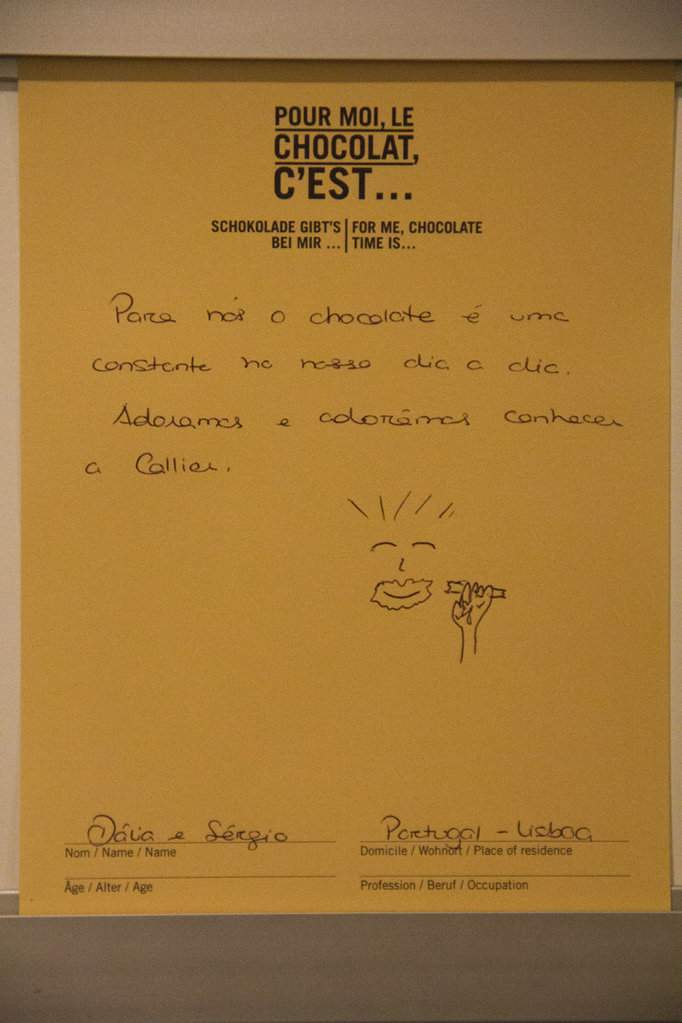 POUR MOI, LE
CHOCOLAT,
C'EST...
SCHOKOLADE GIBT'S
BEI MIR ...
FOR ME, CHOCOLATE
TIME IS...
Para nós o chocolate é uma
constante no nosso dia a dia.
Adoramos e adorámos conhecer
a Callier.
Dália e Sérgio
Nom / Name / Name
Portugal - Lisboa
Domicile / Wohnort / Place of residence
Âge / Alter / Age
Profession / Beruf / Occupation